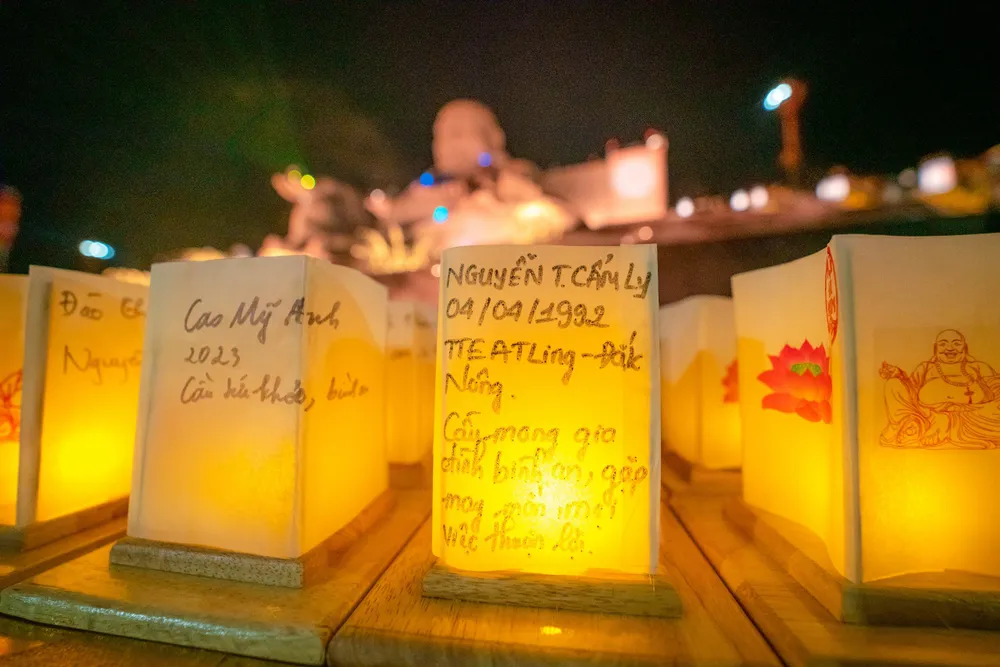 Đào
Nguyễn
Cao Mỹ Anh
2023
Cầu sức khỏe, bình
NGUYỄN T.CẨM LY
04/04/1992
TTEATLing-Đắk
Nông.
Cầu mong gia
đình bình an, gặp
may mắn, mọi
việc thuận lợi.